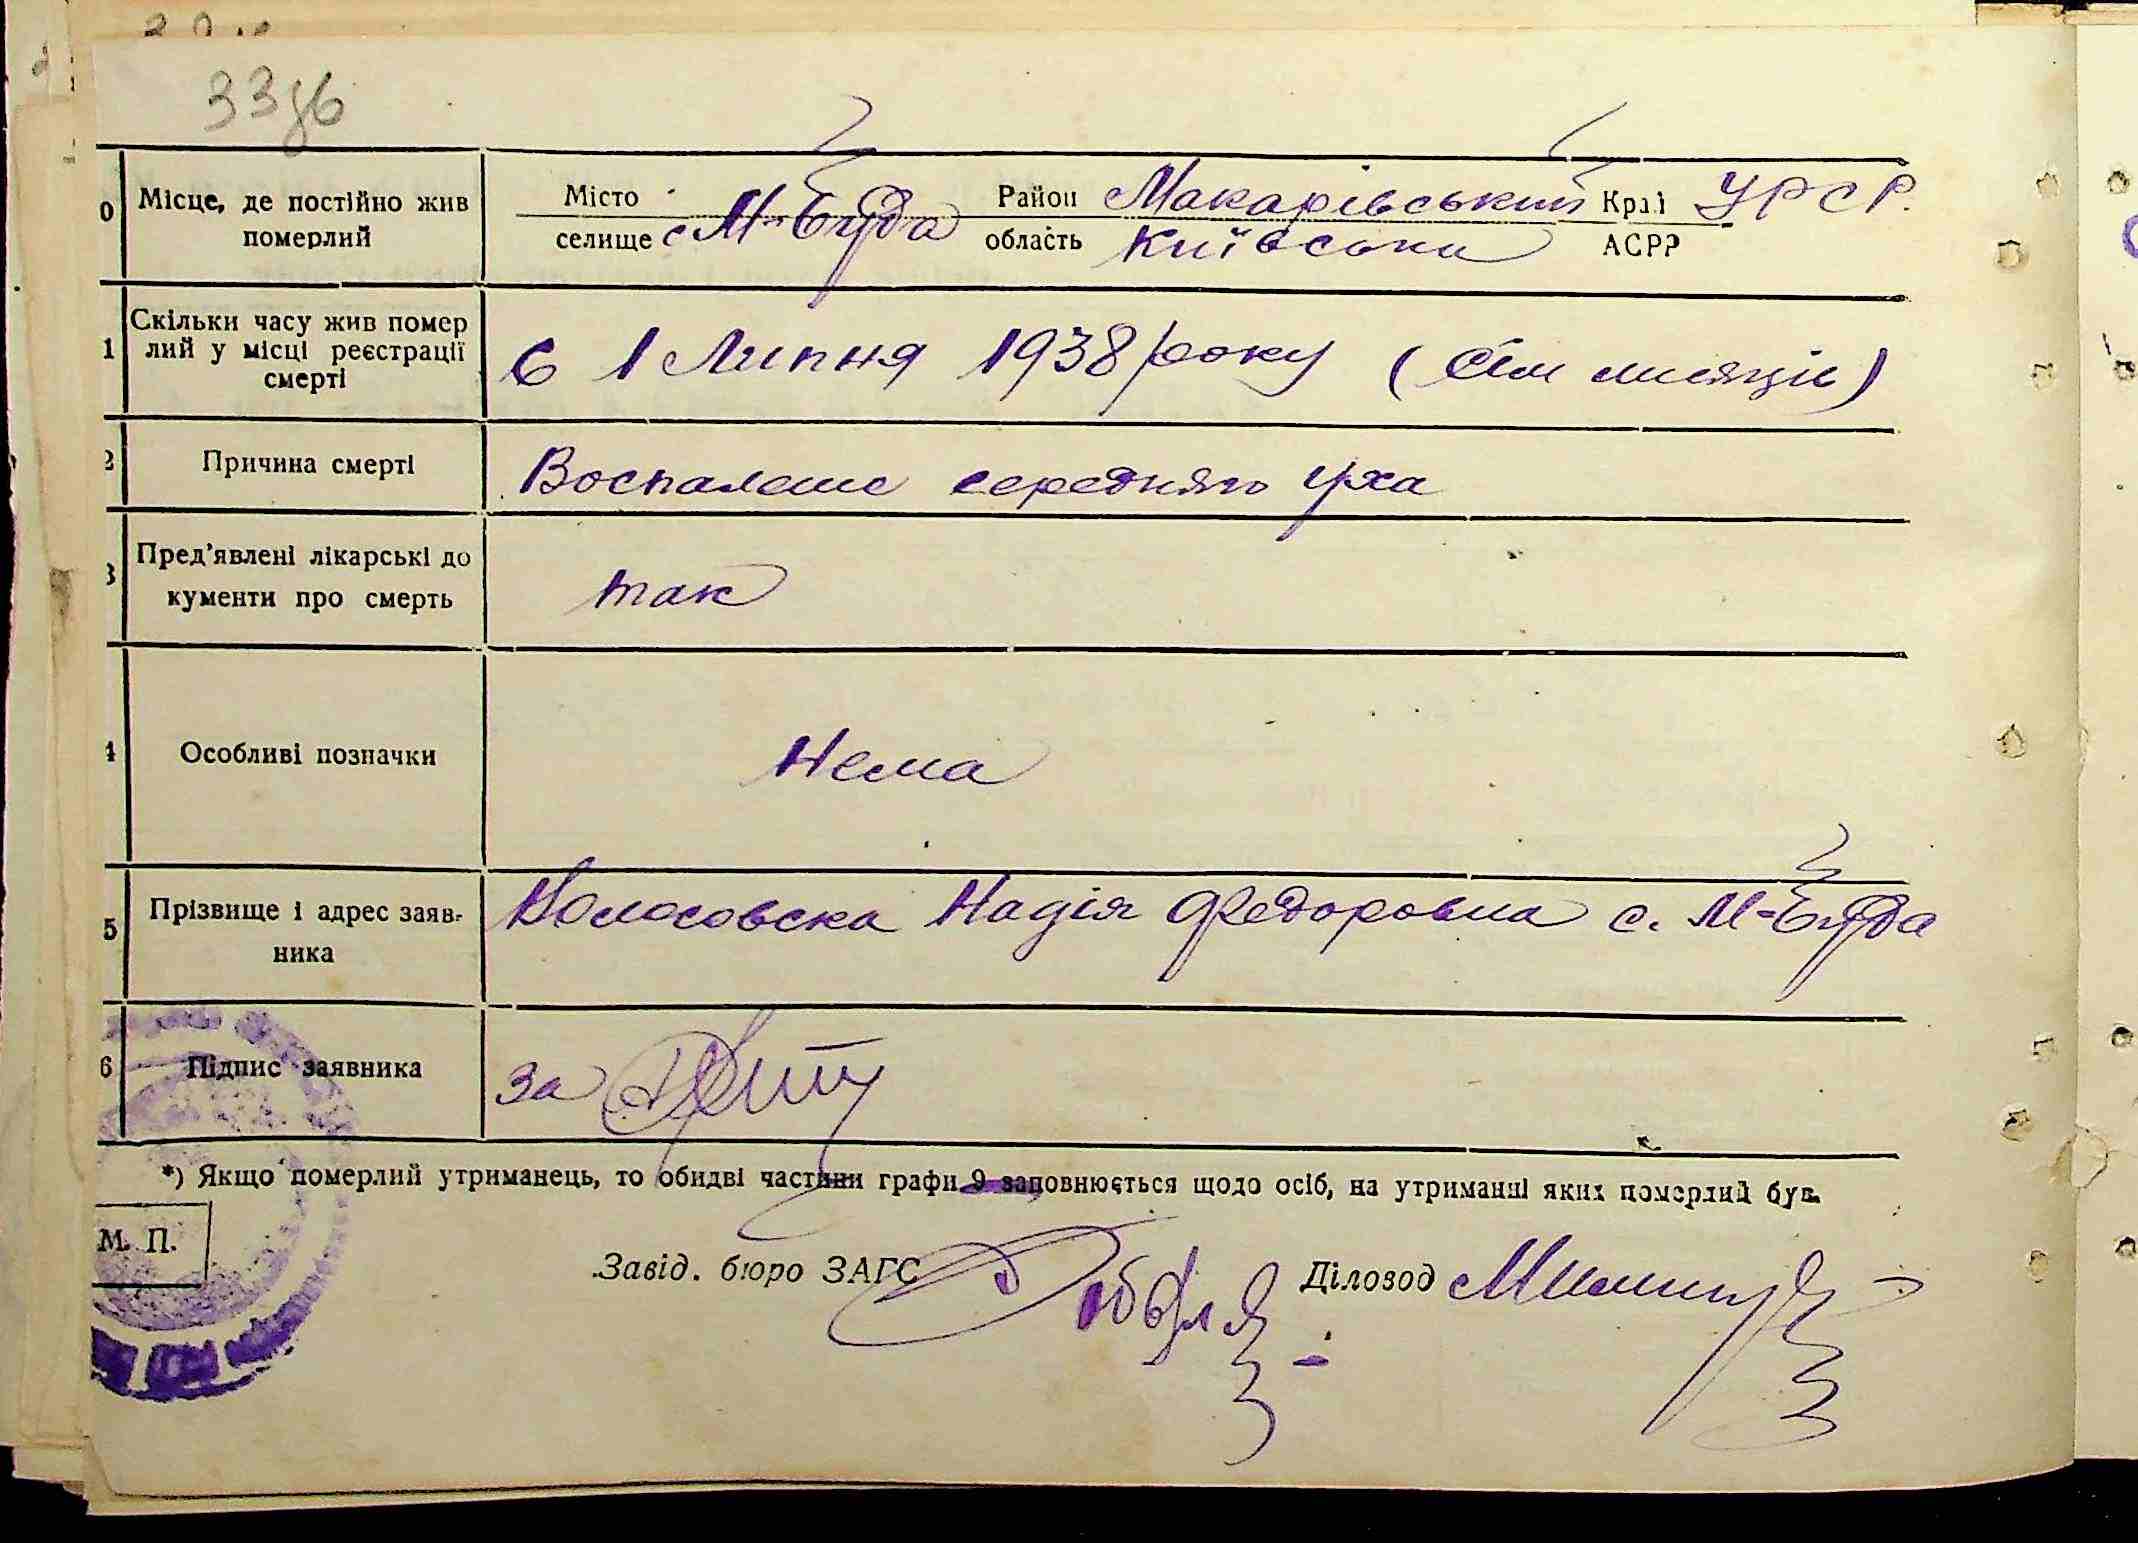 33зв
0 Місце, де постійно жив померлий
Місто селище с М-Буда Район Макарівський область Київська Краї АСРР УРСР.
1 Скільки часу жив помер лий у місці реєстрації смерті
С 1 Липня 1938 року (Сім місяців)
2 Причина смерті
Воспаление середняго уха
3 Пред'явлені лікарські до кументи про смерть
так
4 Особливі позначки
Нема
5 Прізвище і адрес заяв- ника
Надія Федоровна с. М-Буда
6 Підпис заявника
за
*) Якщо померлий утриманець, то обидві частини графи 9 заповнюється щодо осіб, на утриманні яких померлий був.
М. П.
Завід. бюро ЗАГС
Діловод